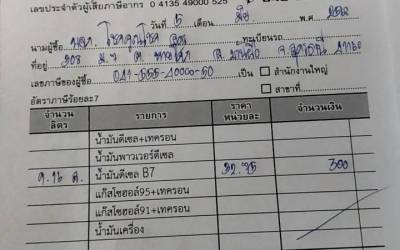 เลขประจำตัวผู้เสียภาษีอากร 0 4135 49000 525
วันที่ 5 เดือน พ.ศ.
นามผู้ซื้อ ทะเบียนรถ
ที่อยู่ 208 ม.7 ต. อ. จ.อุดรธานี 41160
เลขภาษีของผู้ซื้อ 041-555-10000-50 เป็น สำนักงานใหญ่
อัตราภาษีร้อยละ7 สาขาที่
จำนวน ลิตร รายการ ราคา หน่วยละ จำนวนเงิน
น้ำมันดีเซล+เทครอน
น้ำมันพาวเวอร์ดีเซล
9.16 ล. น้ำมันดีเซล B7 32.75 300
แก๊สโซฮอล์95+เทครอน
แก๊สโซฮอล์91+เทครอน
น้ำมันเครื่อง